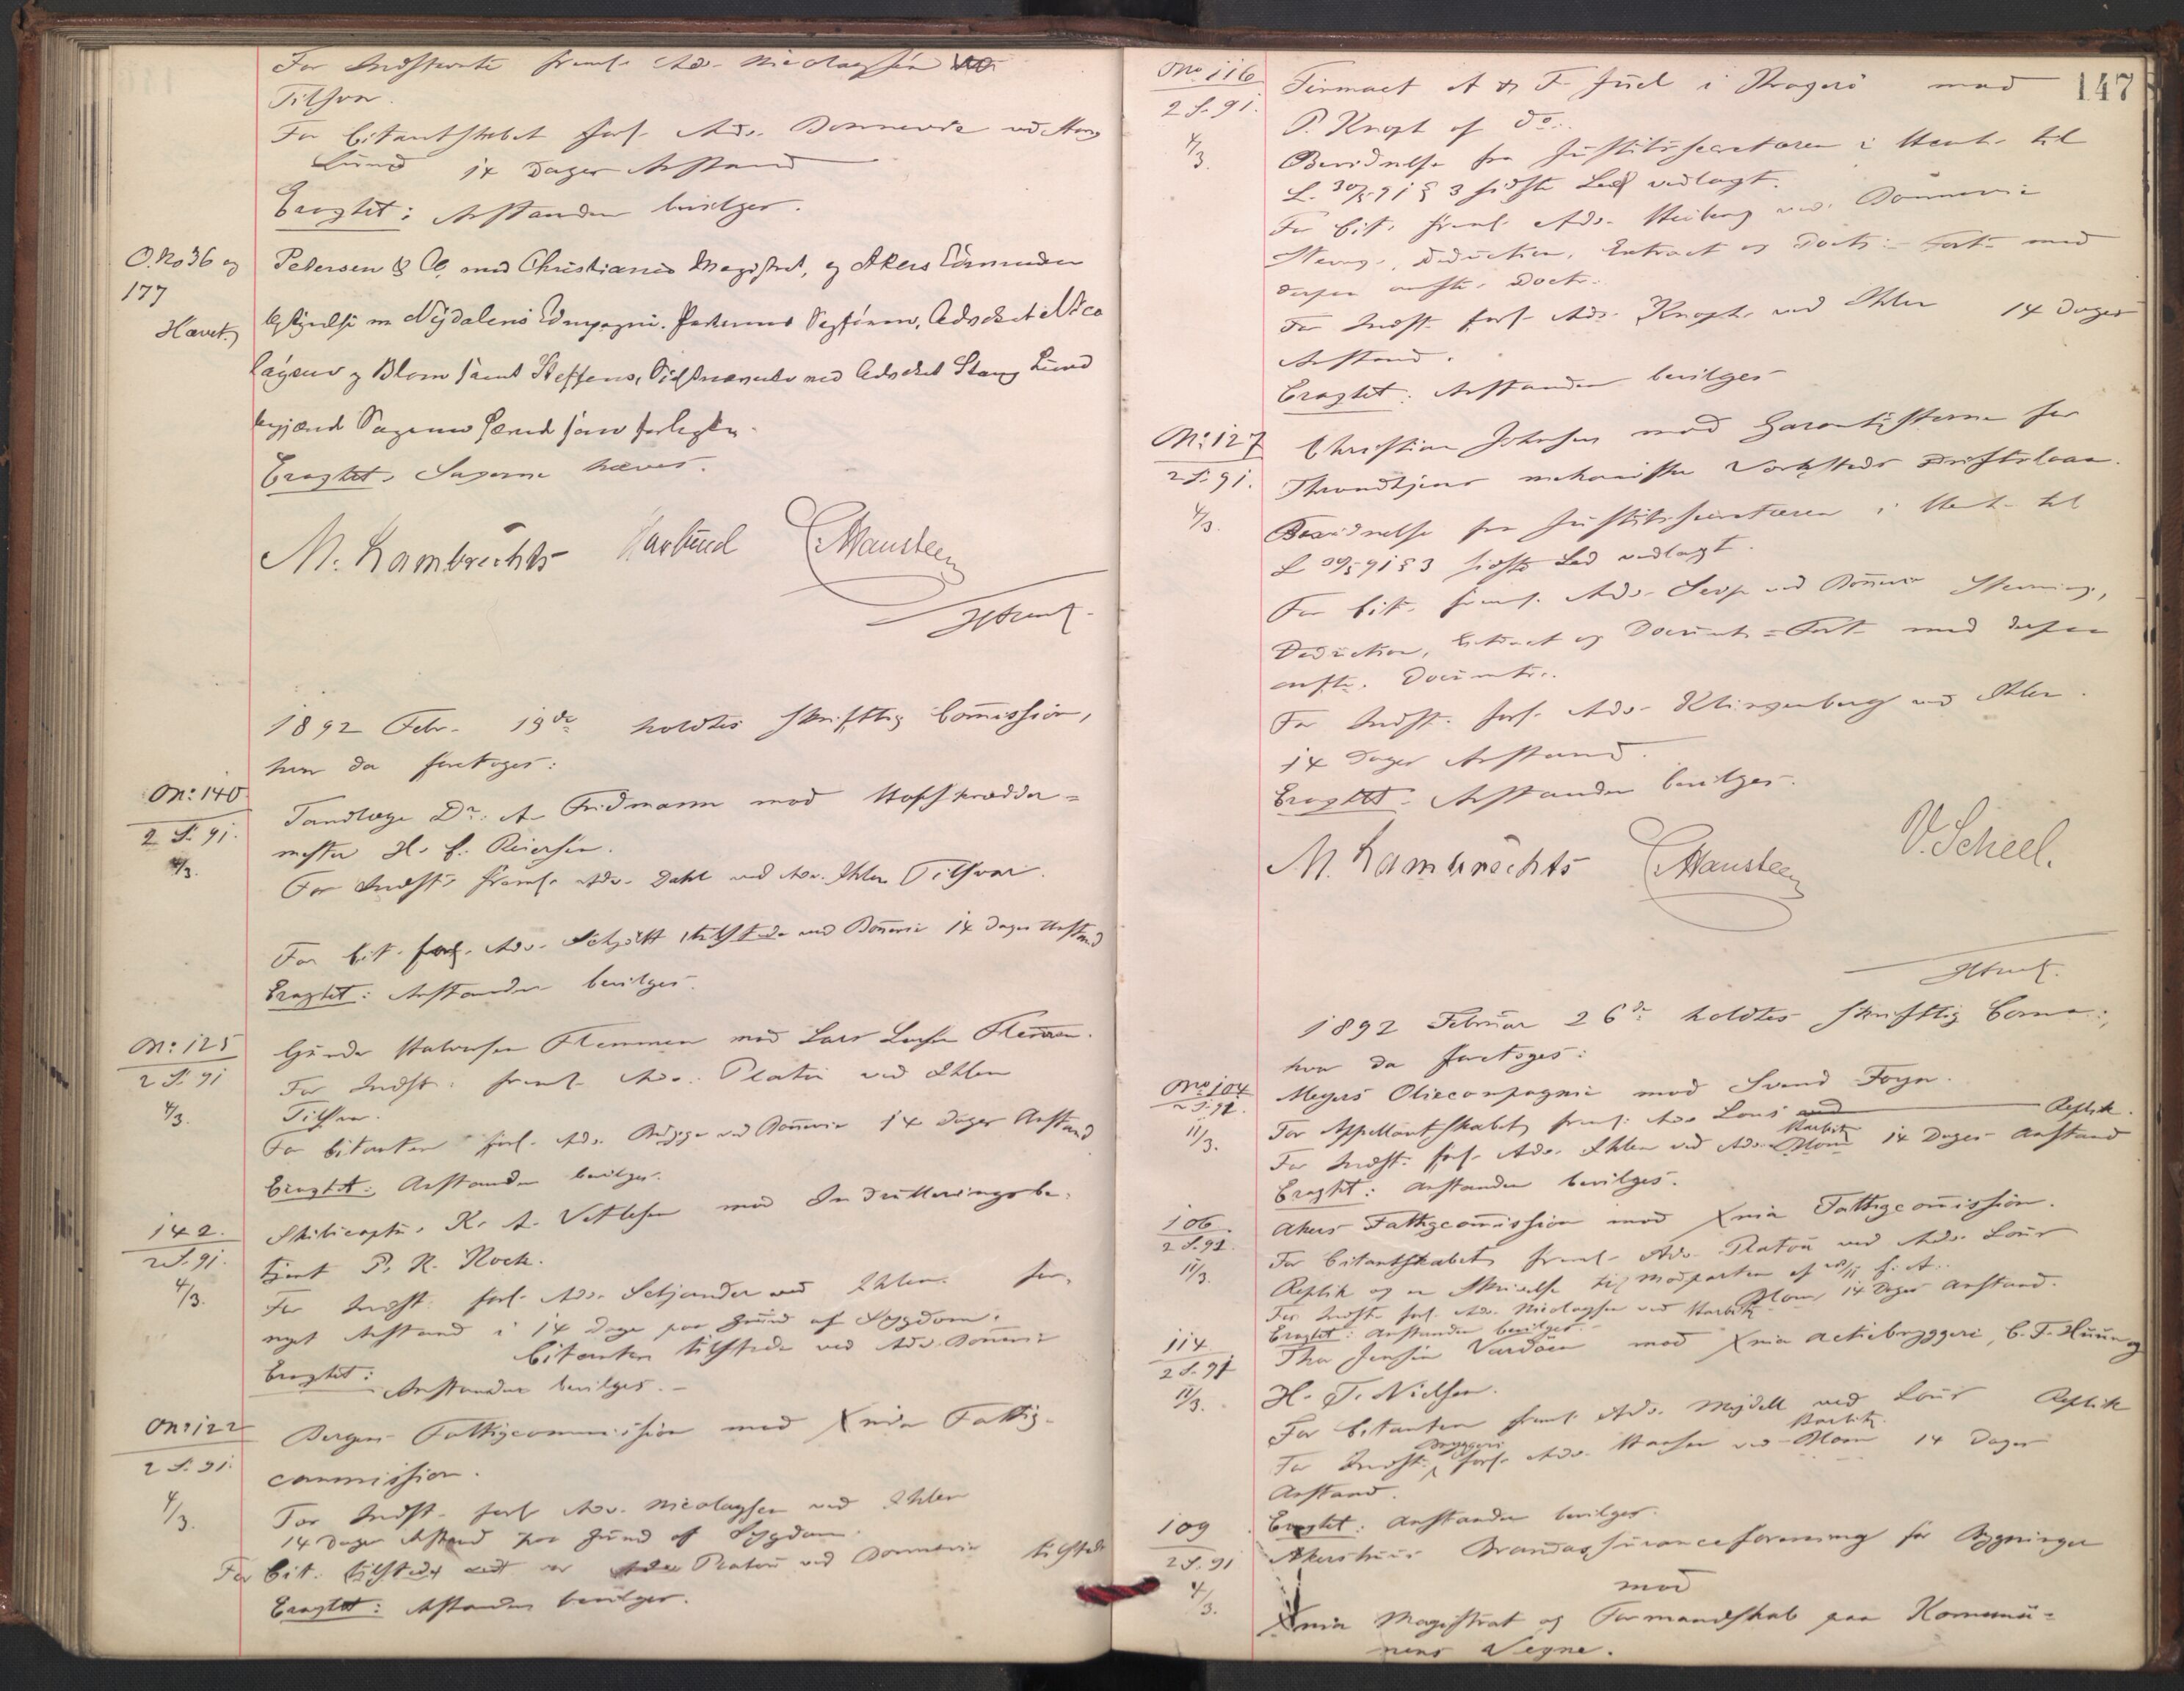 For Indstevnte freml. Adv. Nicolaysen
Tilsvar.
For Citantskabet forl. Adv. Dønnevie ved Stang
Lund 14 Dages Anstand
Eragtet: Anstanden bevilges.
O.No 36 og
177
Hævet
Petersen & Co. mod Christiania Magistrat, og Akers Communes
bestyrelse m Nydalens Compagni. Parternes Sagførere, Advokat Nico
laysen og Blom samt Steffens, Vidtnævnte ved Advokat Stang Lund
begjærede Sagerne hævede som forligte.
Eragtet, Sagerne hæves.
M. Lambrechts Haslund C. Hansteen
1892 Febr. 19de holdtes skriftlig Commission,
hvor da foretoges:
No: 140
2 S. 91.
4/3.
Tandlæge Dr. A Fridmann mod Hofskrædder=
mester H. C. Reiersen.
For Indst. freml. Adv. Dahl ved Adv. Ihlen Tilsvar.
For Cit. forl. Adv. Schjøtt tilstede ved Dønnevie 14 Dages Anstand
Eragtet: Anstanden bevilges.
No: 125
2 S. 91
4/3.
Gunder Halvorsen Flemmen mod Lars Larsen Flemmen.
For Indst. freml. Adv. Platou ved Ihlen
Tilsvar.
For Citanten forl. Adv. Bugge ved Dønnevie 14 Dages Anstand
Eragtet: Anstanden bevilges.
142.
2 S. 91.
4/3.
Skibscaptn. K. A. Vetlesen mod Inddrivningsbe-
tjent P. R. Rock.
For Indst. forl. Adv. Schjander ved Ihlen for-
nyet Anstand i 14 Dage paa Grund af Sygdom.
Citanten tilstede ved Adv. Dønnevie
Eragtet:
Anstanden bevilges.-
No: 122
2 S. 91.
4/3.
Bergens Fattigcommission mod Xnia Fattig-
commission.
For Indst. forl. Adv. Nicolaysen ved Ihlen
14 Dages Anstand paa Grund af Sygdom.
For Cit. tilstede ved Adv. Platou ved Dønnevie tilstede
Eragtet: Anstanden bevilges.
147
No 116
2 S. 91.
4/3.
Firmaet A & F. Juel i Kragerø mod
P. Knoph af do.
Bevidnelse fra Justitssecretæren i Henh. til
L. 30/5 91 § 3 sidste Led vedlagt.
For Cit. freml. Adv. Heiberg ved Dønnevie
Stevng., Deduction, Extract og Docts.- Fort. med
derpaa anførte Docts.
For Indst. forl. Adv. Knoph ved Ihlen 14 Dages
Anstand.
Eragtet: Anstanden bevilges
No: 127
2 S. 91.
4/3.
Christian Johnsen mod Garantisterne for
Throndhjems mekaniske Værksteds Driftslaan.
Bevidnelse fra Justitssecretæren i Henh. til
L 30/5 91 § 3 sidste Led vedlagt.
For Cit. freml. Adv. ved Dønnevie Stevning,
Deduction, Extract og Document=Fort. med derpaa
anførte Documenter.
For Indst. forl. Adv. Klingenberg ved Ihlen
14 Dages Anstand.
Eragtet. Anstanden bevilges.
M. Lambrechts C. Hansteen V. Scheel.
1892 Februar 26de holdtes skriftlig Comm:,
hvor da foretoges:
No 104
2 S. 91.
11/3.
Meyers Oliecompagni mod Svend Foyn.
For Appellantskabet freml. Adv Lous Replik.
For Indst. forl. Adv. Ihlen ved Adv. Blom Harbitz 14 Dages Anstand
Eragtet: Anstanden bevilges.
106
2 S. 91.
11/3.
Akers Fattigcommission mod Xnia Fattigcommission.
For Citantskabet freml. Adv. Platou ved Adv. Lous
Replik og en Skrivelse til Modparten af f. A.
For Indst. forl. Adv. Nicolaysen ved Harbitz Blom, 14 Dages Anstand.
Eragtet: Anstanden bevilges.
114
2 S. 91
11/3.
Thor Jensen Vardøen mod Xnia Actiebryggeri, C. F. Huun og
H. T. Nielsen.
For Citanten freml. Adv. Mejdell ved Lous Replik
For Indst. Bryggeri forl. Adv. Hansen ved Blom Harbitz 14 Dages
Anstand.
Eragtet: Anstanden bevilges.
109
2 S. 91
4/3.
Akershuus Brandassuranceforening for Bygninger
mod
Xnia Magistrat og Formandskab paa Kommu=
nens Vegne.